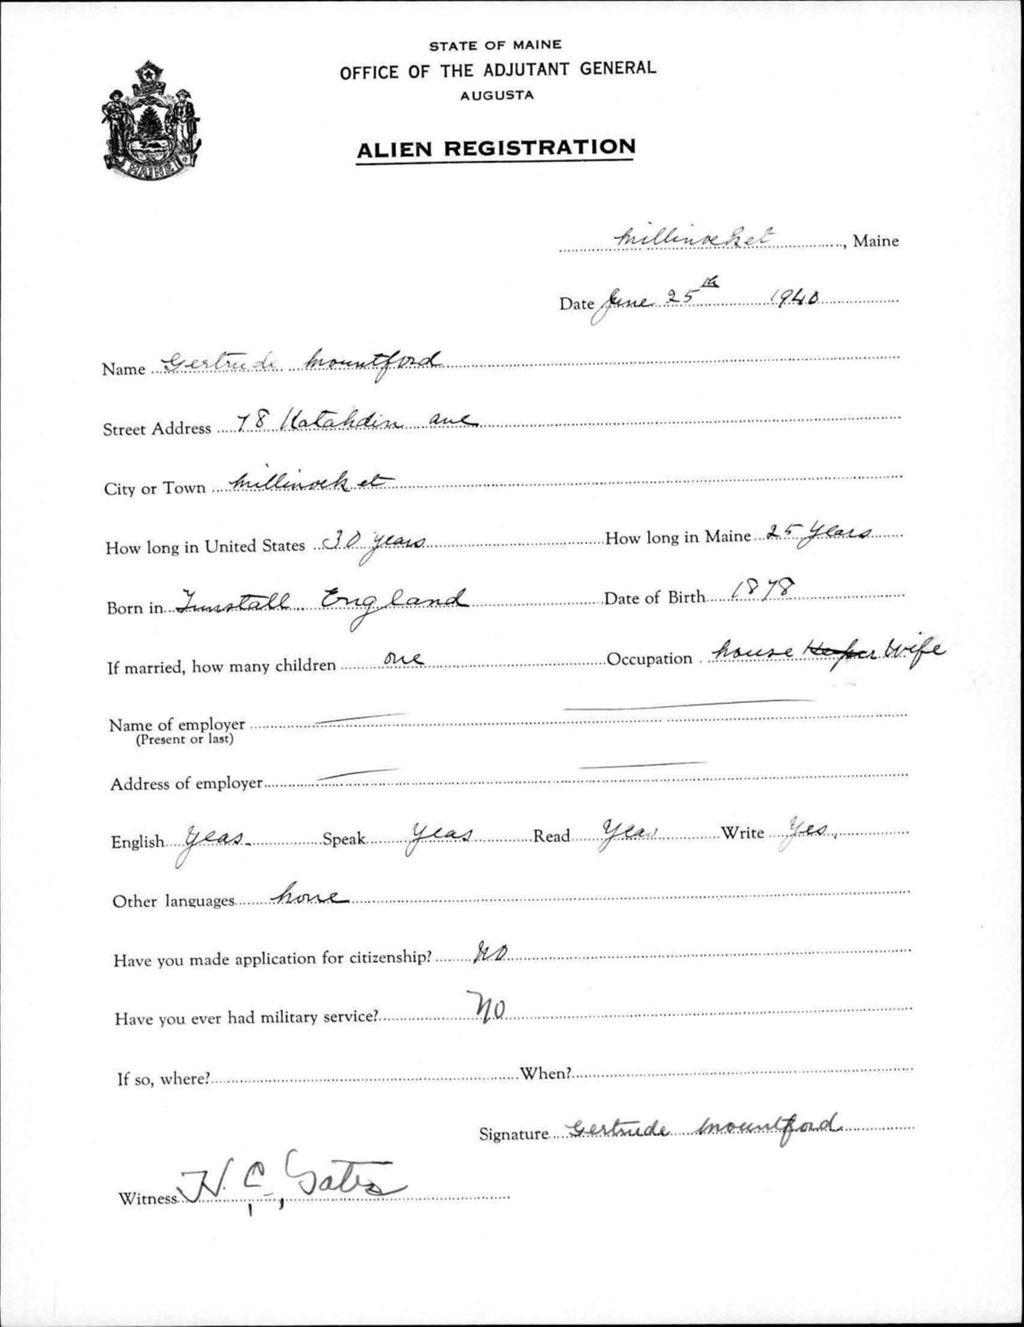 STATE OF MAINE
OFFICE OF THE ADJUTANT GENERAL
AUGUSTA
MAINE
ALIEN REGISTRATION
Millinocket, Maine
Date June 25th 1940
Name Gertrude Mountford
Street Address 78 Katahdin ave
City or Town Millinocket
How long in United States 30 years How long in Maine 25 Years
Born in Tunstall England Date of Birth 1878
If married, how many children one Occupation house Keeper Wife
Name of employer
(Present or last)
Address of employer
English Yeas Speak Yeas Read Yeas Write Yes,
Other languages none
Have you made application for citizenship? NO
Have you ever had military service? NO
If so, where? When?
Signature Gertrude Mountford
Witness H. C. Gates